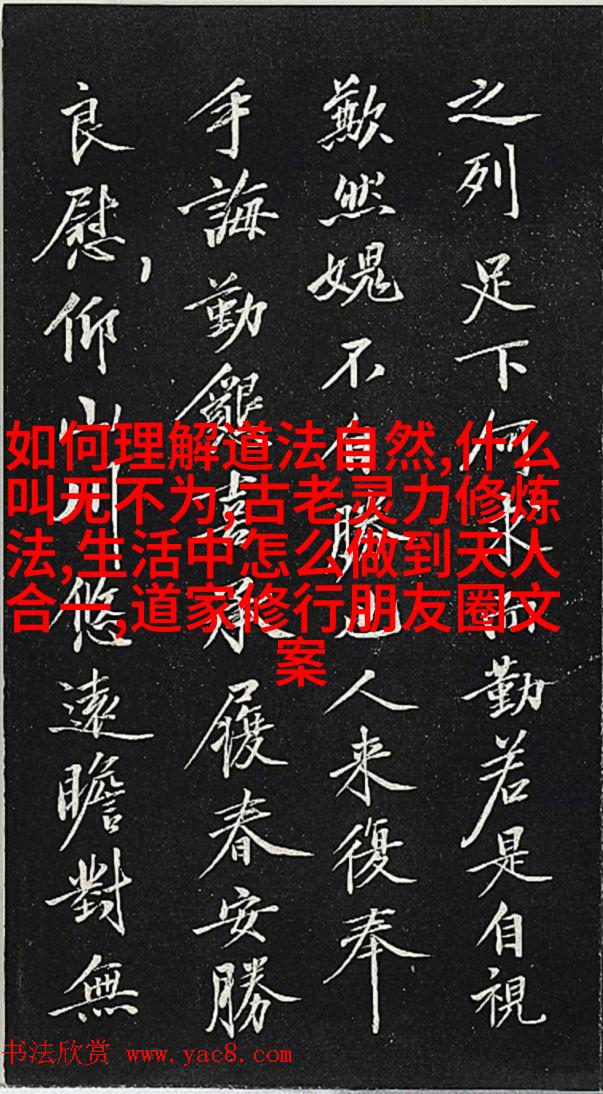 之列足下何求而勤若是自視
歉然媿不自勝也人来復奉
手誨勤懇喜承履春安勝
良慰,仰山川悠遠瞻對無
如何理解道法自然,什么
叫无不为,古老灵力修炼
法,生活中怎么做到天人
合一,道家修行朋友圈文
案
书法欣赏 www.yac8.com